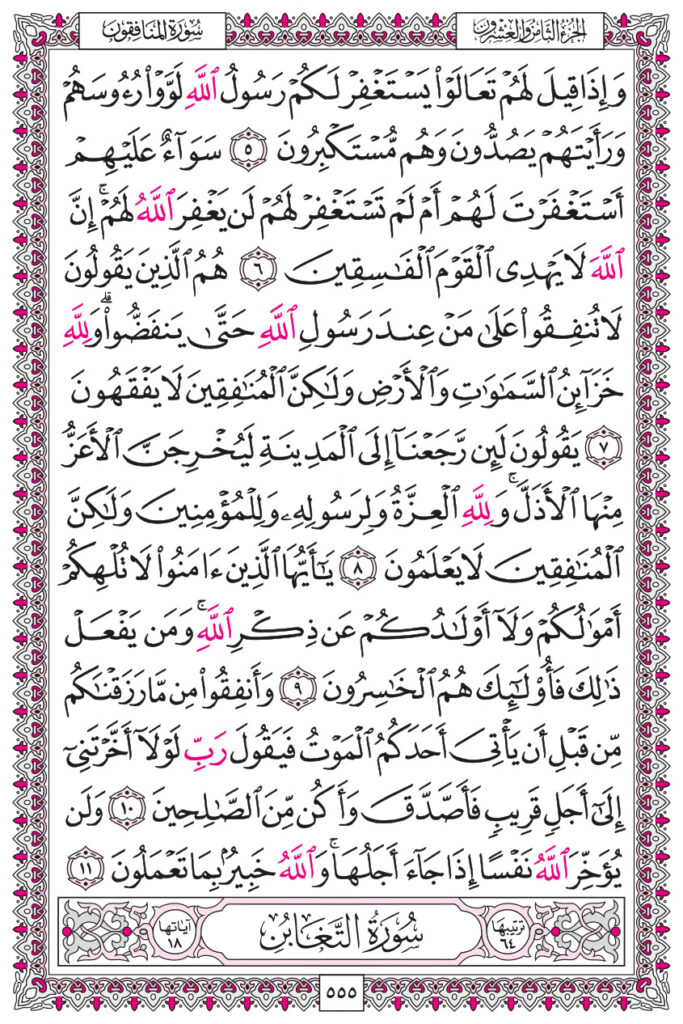 الجزء الثامن والعشرون
سورة المنافقون
وَإِذَا قِيلَ لَهُمْ تَعَالَوْا۟ يَسْتَغْفِرْ لَكُمْ رَسُولُ ٱللَّهِ لَوَّوْا۟ رُءُوسَهُمْ
وَرَأَيْتَهُمْ يَصُدُّونَ وَهُم مُّسْتَكْبِرُونَ ٥ سَوَآءٌ عَلَيْهِمْ
أَسْتَغْفَرْتَ لَهُمْ أَمْ لَمْ تَسْتَغْفِرْ لَهُمْ لَن يَغْفِرَ ٱللَّهُ لَهُمْ ۚ إِنَّ
ٱللَّهَ لَا يَهْدِى ٱلْقَوْمَ ٱلْفَـٰسِقِينَ ٦ هُمُ ٱلَّذِينَ يَقُولُونَ
لَا تُنفِقُوا۟ عَلَىٰ مَنْ عِندَ رَسُولِ ٱللَّهِ حَتَّىٰ يَنفَضُّوا۟ ۗ وَلِلَّهِ
خَزَآئِنُ ٱلسَّمَـٰوَٰتِ وَٱلْأَرْضِ وَلَـٰكِنَّ ٱلْمُنَـٰفِقِينَ لَا يَفْقَهُونَ
٧ يَقُولُونَ لَئِن رَّجَعْنَآ إِلَى ٱلْمَدِينَةِ لَيُخْرِجَنَّ ٱلْأَعَزُّ
مِنْهَا ٱلْأَذَلَّ ۚ وَلِلَّهِ ٱلْعِزَّةُ وَلِرَسُولِهِۦ وَلِلْمُؤْمِنِينَ وَلَـٰكِنَّ
ٱلْمُنَـٰفِقِينَ لَا يَعْلَمُونَ ٨ يَـٰٓأَيُّهَا ٱلَّذِينَ ءَامَنُوا۟ لَا تُلْهِكُمْ
أَمْوَٰلُكُمْ وَلَآ أَوْلَـٰدُكُمْ عَن ذِكْرِ ٱللَّهِ ۚ وَمَن يَفْعَلْ
ذَٰلِكَ فَأُو۟لَـٰٓئِكَ هُمُ ٱلْخَـٰسِرُونَ ٩ وَأَنفِقُوا۟ مِن مَّا رَزَقْنَـٰكُم
مِّن قَبْلِ أَن يَأْتِىَ أَحَدَكُمُ ٱلْمَوْتُ فَيَقُولَ رَبِّ لَوْلَآ أَخَّرْتَنِىٓ
إِلَىٰٓ أَجَلٍ قَرِيبٍ فَأَصَّدَّقَ وَأَكُن مِّنَ ٱلصَّـٰلِحِينَ ١٠ وَلَن
يُؤَخِّرَ ٱللَّهُ نَفْسًا إِذَا جَآءَ أَجَلُهَا ۚ وَٱللَّهُ خَبِيرٌۢ بِمَا تَعْمَلُونَ ١١
ترتيبها ٦٤ سُورَةُ التَّغَابُن آياتها ١٨
٥٥٥